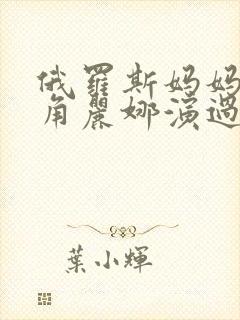 俄羅斯妈妈
角麗娜演過
葉小輝